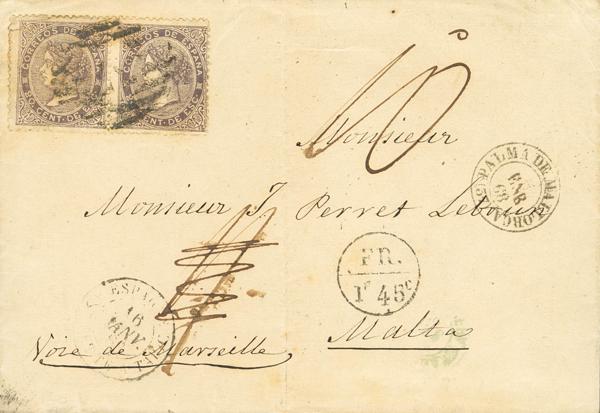 CORREOS DE ESPAÑA CORREOS DE ESPAÑA
50 CENT. DE ESC. 50 CENT. DE ESC.
10
Monsieur
PALMA DE MALLORCA
ENE
68
Monsieur J. Perret Lebouis
FR.
1F 45c
ESPAGNE
16
JANV
Malta
Voie de Marseille